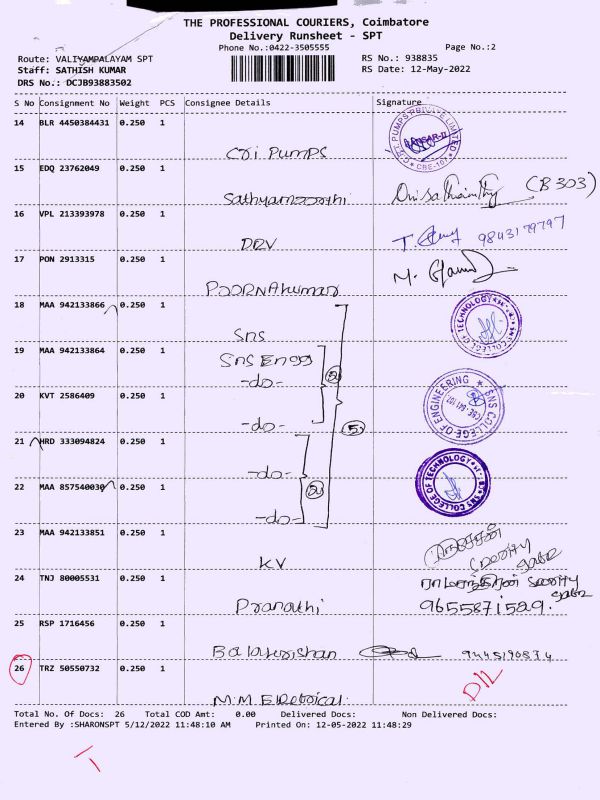 THE PROFESSIONAL COURIERS, Coimbatore
Delivery Runsheet - SPT
Phone No.:0422-3505555
Page No.:2
Route: VALIYAMPALAYAM SPT
RS No.: 938835
Staff: SATHISH KUMAR
RS Date: 12-May-2022
DRS No.: DCJB93883502
S No Consignment No Weight PCS Consignee Details Signature
14 BLR 4450384431 0.250 1
C.R.I. PUMPS PRIVATE LIMITED CBE-107
Cri Pumps
15 EDQ 23762049 0.250 1
Sathyamoorthi (B 303)
16 VPL 213393978 0.250 1
DRV T. 9843179797
17 PON 2913315 0.250 1
POORNAkumar M.
18 MAA 942133866 0.250 1
SNS
COLLEGE OF TECHNOLOGY
19 MAA 942133864 0.250 1
SNS Engg
-do-
20 KVT 2586409 0.250 1
SNS COLLEGE OF ENGINEERING CBE 641 107
-do-
21 HRD 333094824 0.250 1
-do-
22 MAA 857540030 0.250 1
SNS COLLEGE OF TECHNOLOGY
-do-
23 MAA 942133851 0.250 1
KV
24 TNJ 80005531 0.250 1
Pranathi 9655871529.
25 RSP 1716456 0.250 1
Balakrishan 9445190874
26 TRZ 50550732 0.250 1
D/L
M.M Eletrical
Total No. Of Docs: 26 Total COD Amt: 0.00 Delivered Docs: Non Delivered Docs:
Entered By :SHARONSPT 5/12/2022 11:48:10 AM Printed On: 12-05-2022 11:48:29